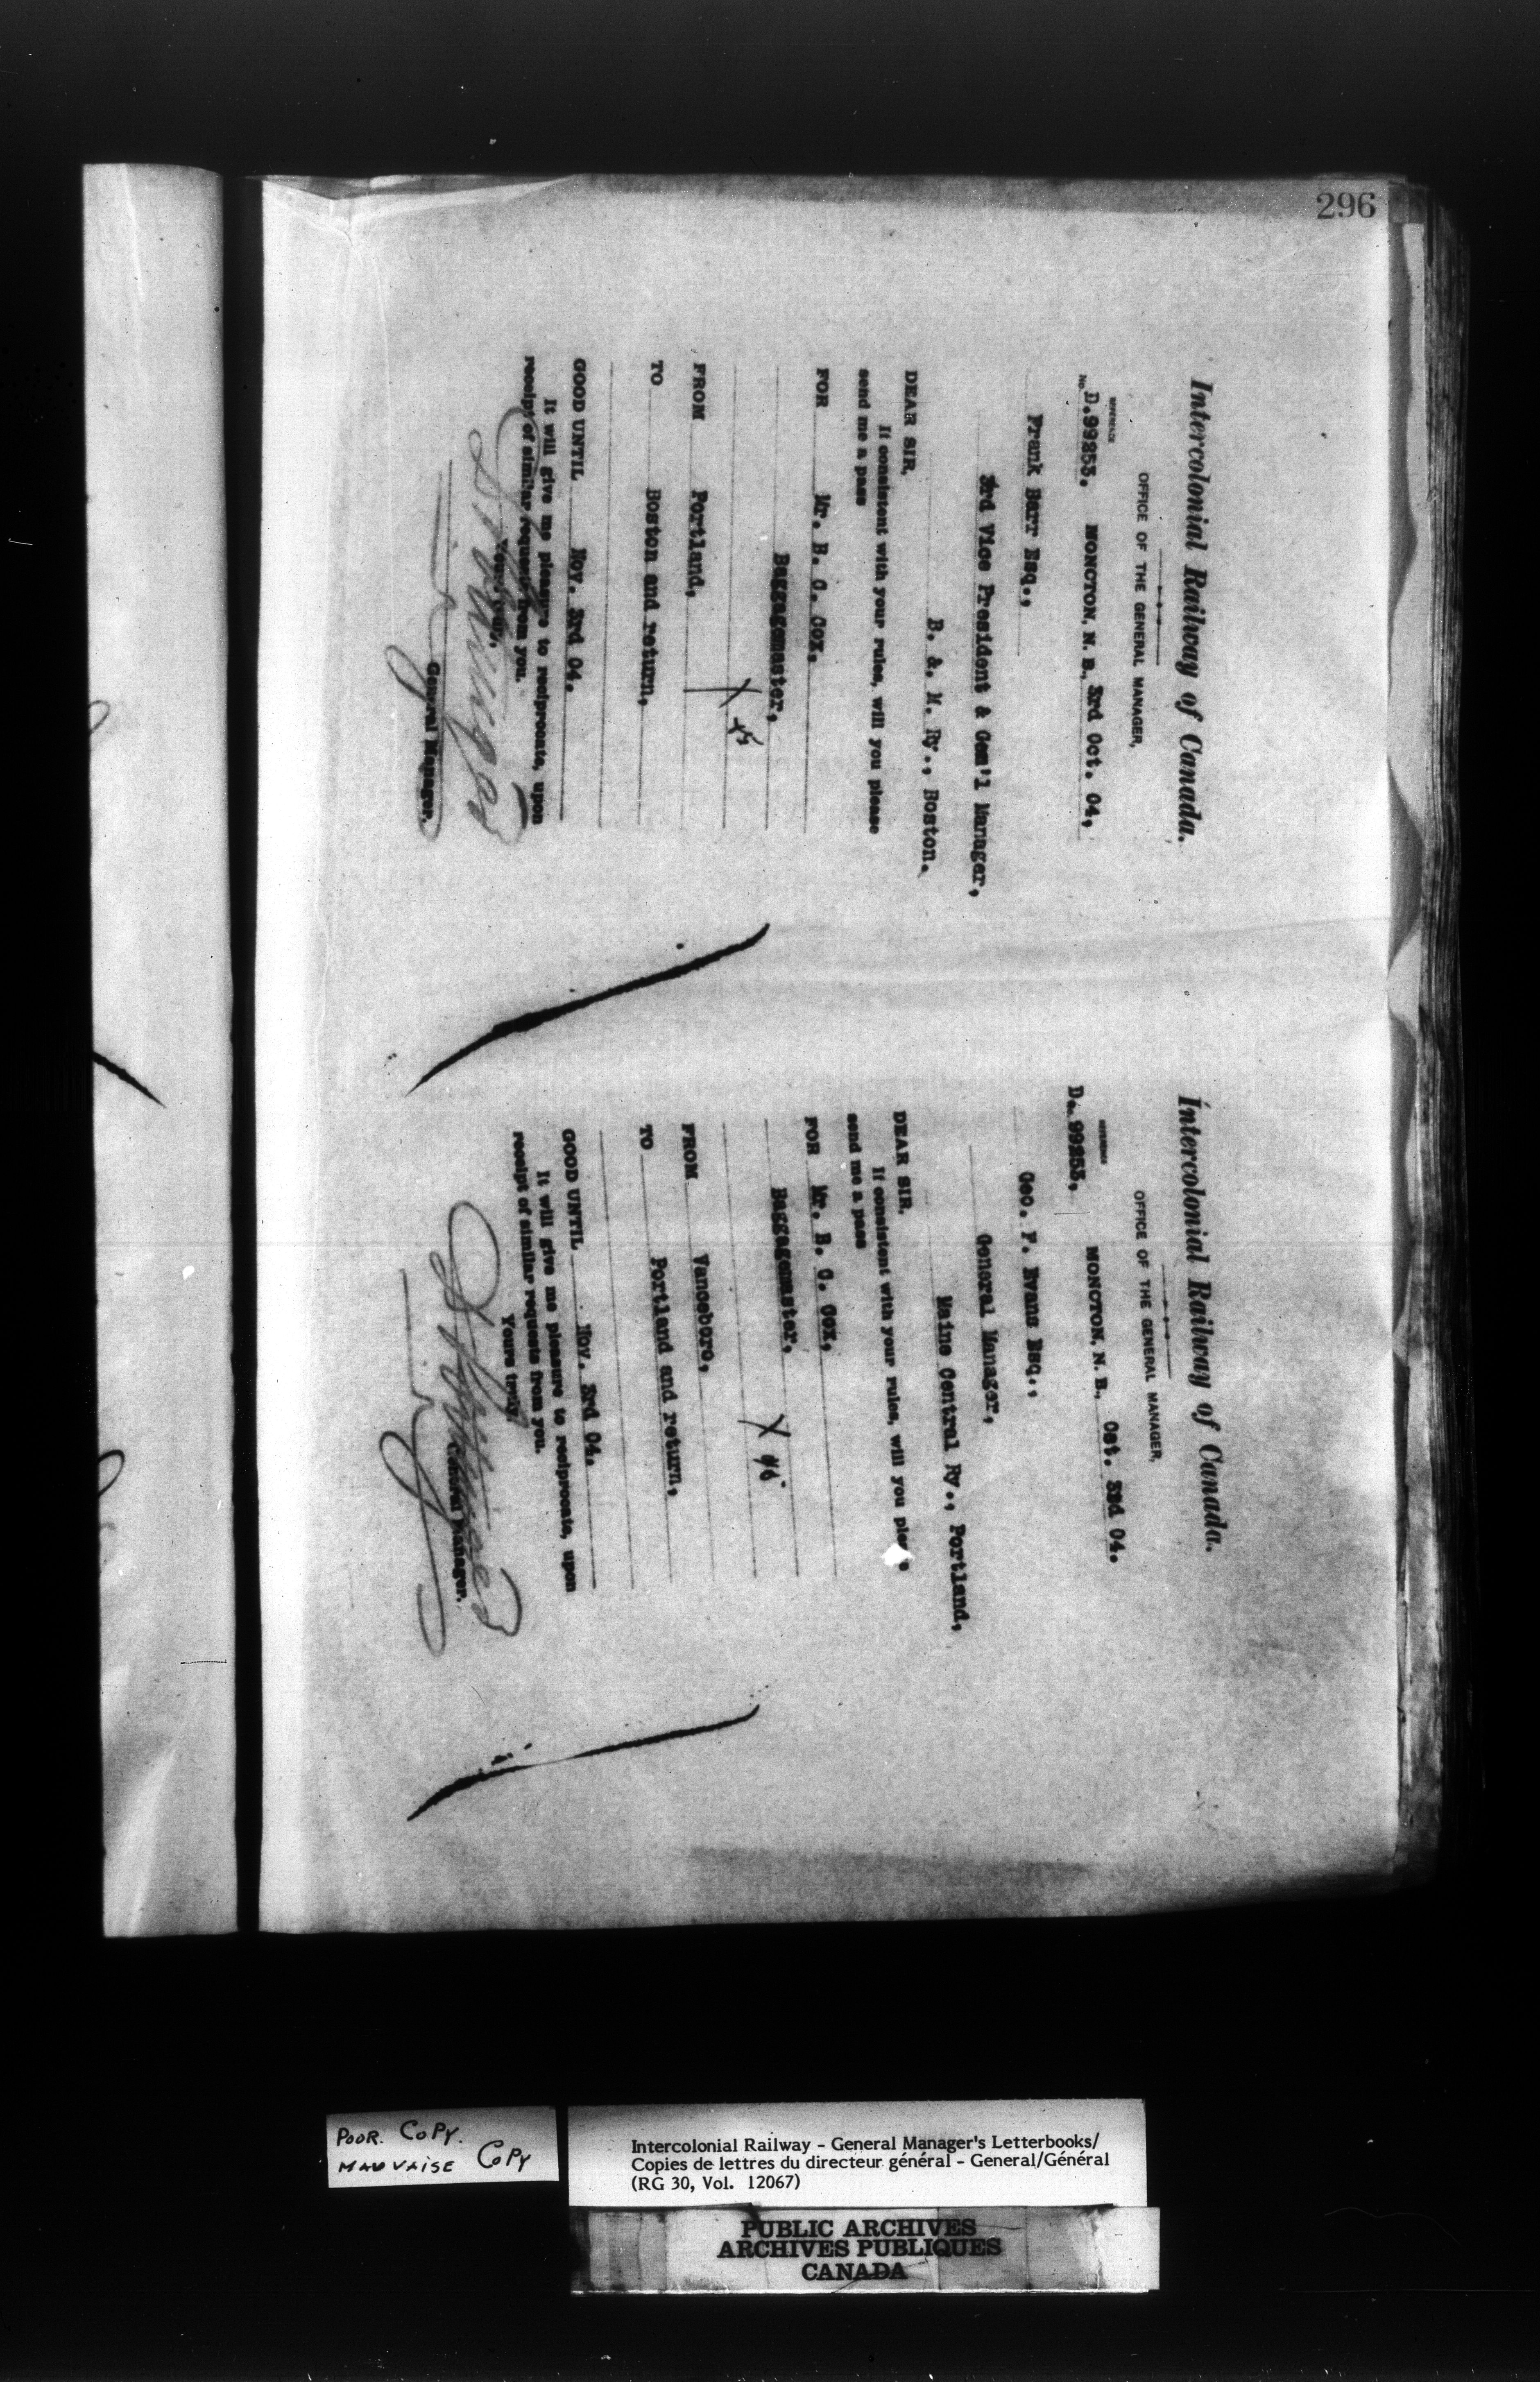 296
Intercolonial Railway of Canada.
OFFICE OF THE GENERAL MANAGER,
REFERENCE
No. D.99253. MONCTON, N. B., 3rd Oct. 04,
Frank Barr Esq.,
3rd Vice President & Gen'l Manager,
B. & M. Ry., Boston.
DEAR SIR,
If consistent with your rules, will you please
send me a pass
FOR Mr. B. C. Cox,
Baggagemaster,
FROM Portland,
TO Boston and return,
GOOD UNTIL Nov. 3rd 04.
It will give me pleasure to reciprocate, upon
receipt of similar requests from you.
Yours truly,
General Manager.
Intercolonial Railway of Canada.
OFFICE OF THE GENERAL MANAGER,
REFERENCE
D. 99253. MONCTON, N. B., Oct. 3rd 04.
Geo. F. Evans Esq.,
General Manager,
Maine Central Ry., Portland,
DEAR SIR,
If consistent with your rules, will you please
send me a pass
FOR Mr. B. C. Cox,
Baggagemaster,
FROM Vanceboro,
TO Portland and return,
GOOD UNTIL Nov. 3rd 04.
It will give me pleasure to reciprocate, upon
receipt of similar requests from you.
Yours truly,
General Manager.
POOR. COPY.
MAUVAISE COPY
Intercolonial Railway - General Manager's Letterbooks/
Copies de lettres du directeur général - General/Général
(RG 30, Vol. 12067)
PUBLIC ARCHIVES
ARCHIVES PUBLIQUES
CANADA